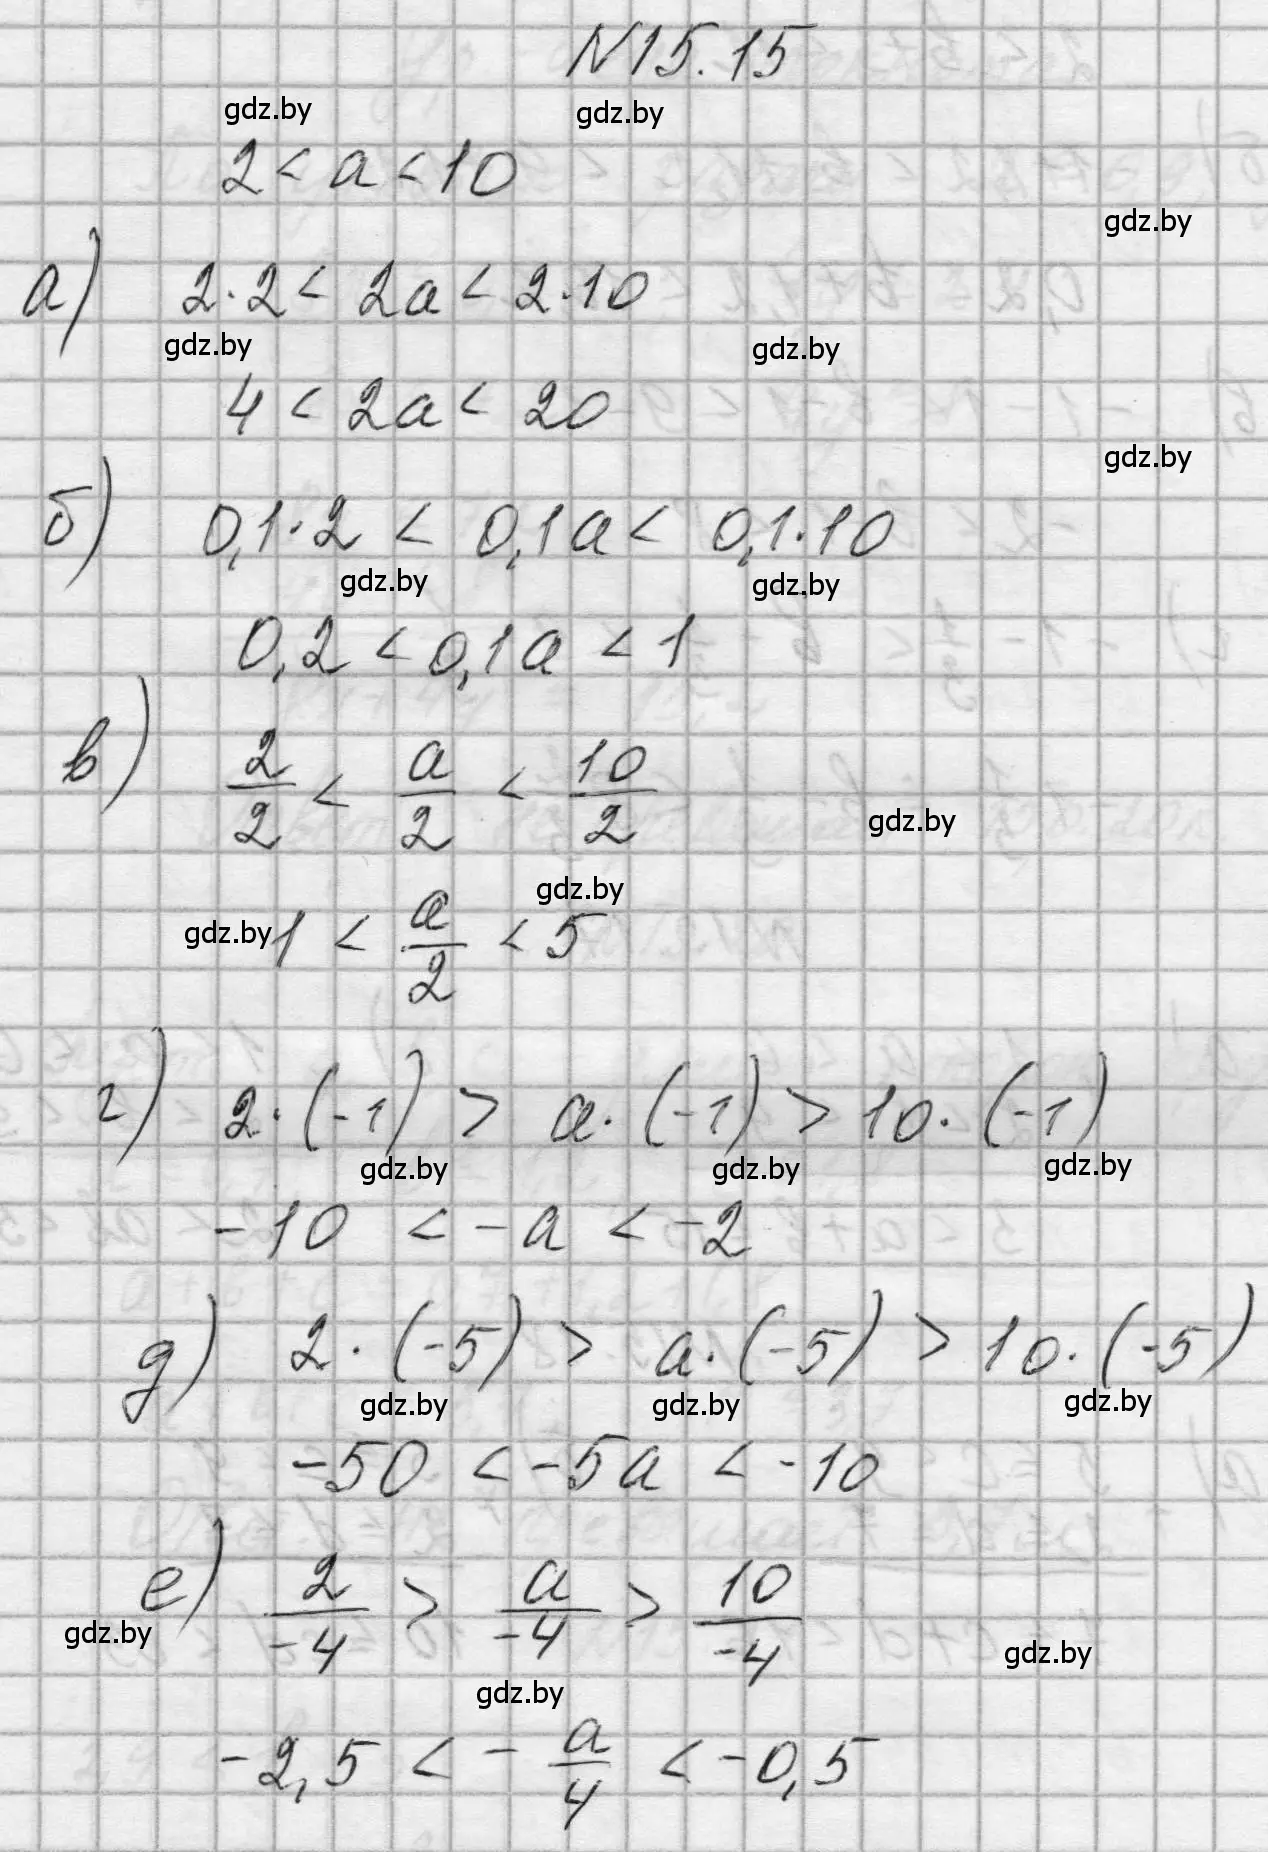 N15.15
gdz.by gdz.by
2 < a < 10
gdz.by
а) 2·2 < 2a < 2·10
gdz.by gdz.by
4 < 2a < 20
gdz.by
б) 0,1·2 < 0,1a < 0,1·10
gdz.by gdz.by
0,2 < 0,1a < 1
в) 2/2 < a/2 < 10/2
gdz.by
gdz.by
gdz.by 1 < a/2 < 5
г) 2·(-1) > a·(-1) > 10·(-1)
gdz.by gdz.by gdz.by
-10 < -a < -2
д) 2·(-5) > a·(-5) > 10·(-5)
gdz.by gdz.by gdz.by
-50 < -5a < -10
е) 2/-4 > a/-4 > 10/-4
gdz.by gdz.by
gdz.by
-2,5 < -a/4 < -0,5